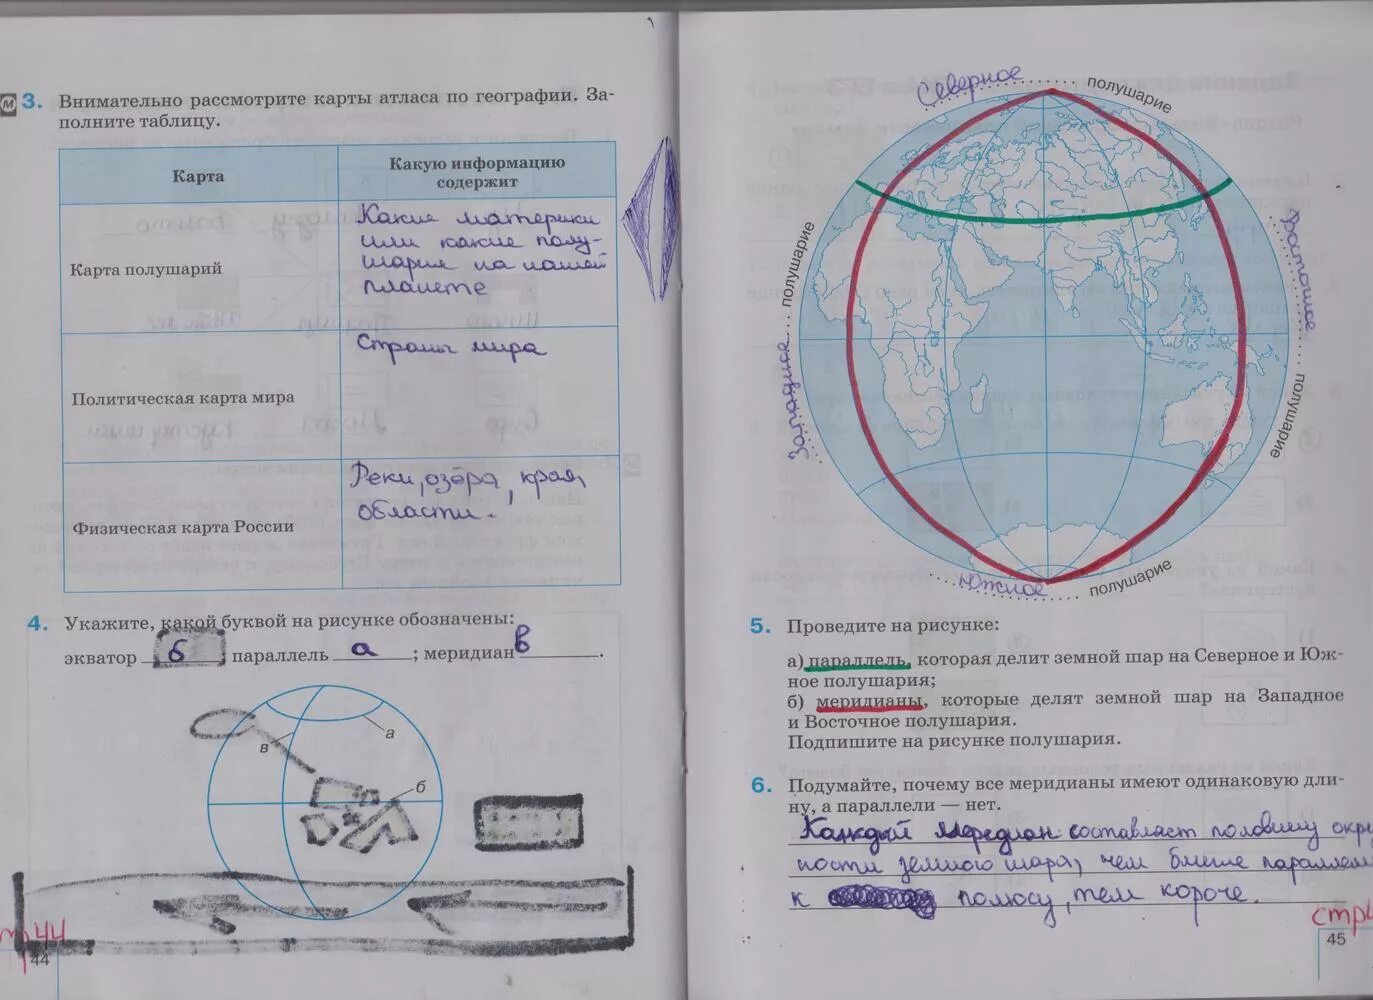 3. Внимательно рассмотрите карты атласа по географии. За-
полните таблицу.
Карта
Какую информацию
содержит
Карта полушарий
Какие материки
или какие полу-
шария на нашей
планете
Политическая карта мира
Страны мира
Физическая карта России
Реки, озёра, края,
области.
4. Укажите, какой буквой на рисунке обозначены:
экватор б параллель а ; меридиан в .
в
а
б
стр 44
44
Северное полушарие
Западное полушарие
Восточное полушарие
Южное полушарие
5. Проведите на рисунке:
а) параллель, которая делит земной шар на Северное и Юж-
ное полушария;
б) меридианы, которые делят земной шар на Западное
и Восточное полушария.
Подпишите на рисунке полушария.
6. Подумайте, почему все меридианы имеют одинаковую дли-
ну, а параллели — нет.
Каждый меридиан составляет половину окру
ности земного шара, чем ближе параллел
к полюсу, тем короче.
стр
45